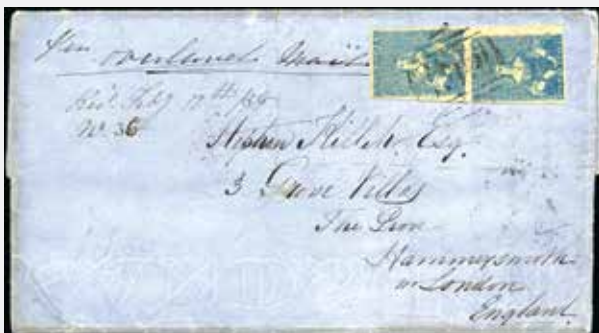 overland Mail
Recd. Feby 17th /55
No. 36
Stephen Esq.
3 Grove Villas
The Grove
Hammersmith
London
England